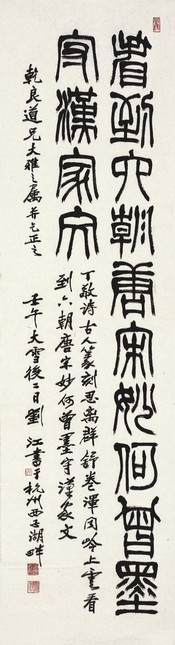 看到六朝唐宋妙何曾墨
守漢家文
丁敬詩古人篆刻思離群舒卷渾同嶺上雲看
到六朝唐宋妙何曾墨守漢家文
乾良道兄大雅之屬并乞正之
壬午大雪後二日劉江書于杭州西子湖畔